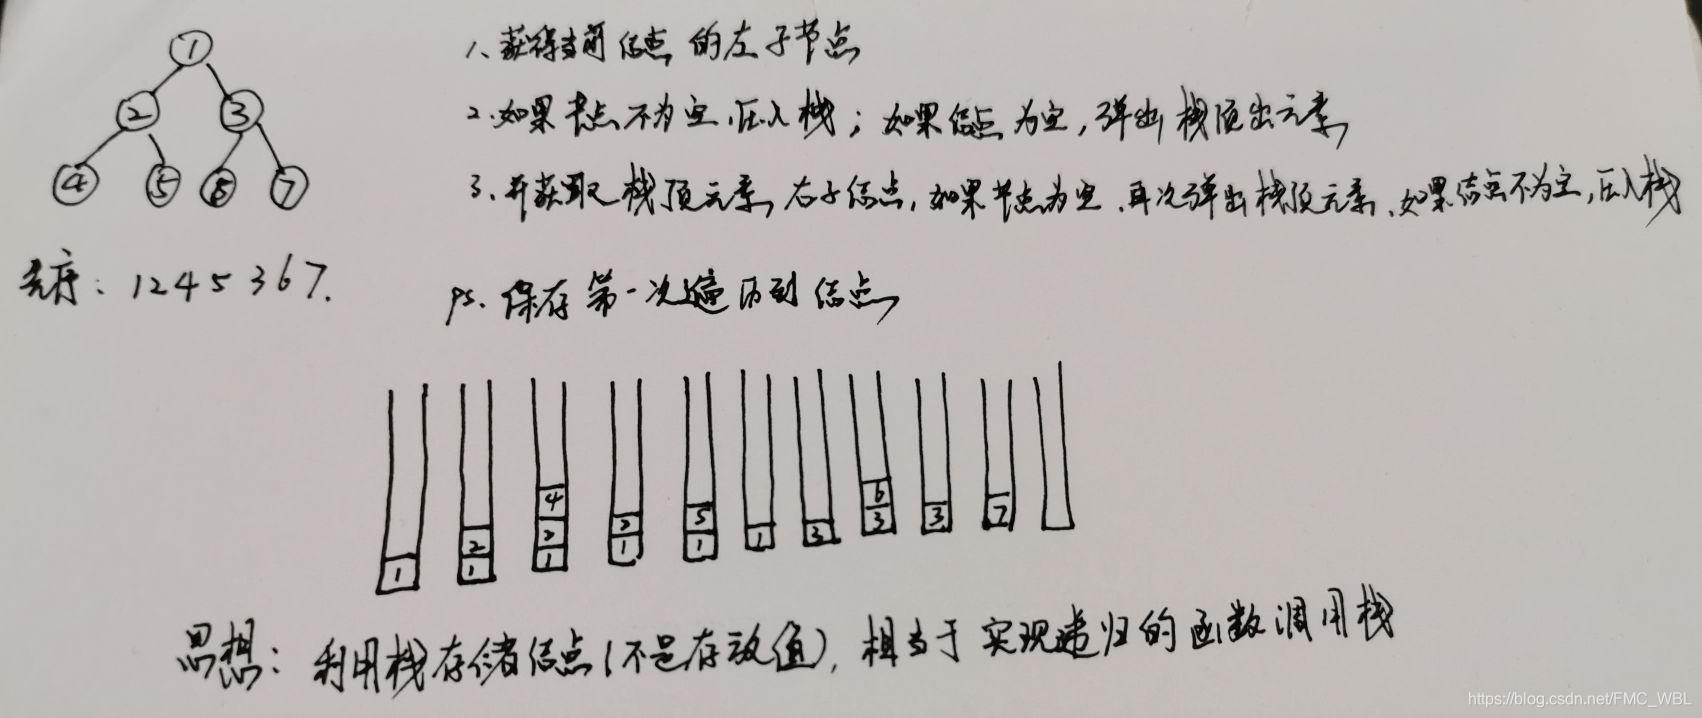 1
2 3
4 5 6 7
1、获得当前结点的左子节点
2.如果节点不为空,压入栈;如果结点为空,弹出栈顶出元素
3.并获取栈顶元素,右子结点,如果节点为空,再次弹出栈顶元素,如果结点不为空,压入栈
先序:1245367.
ps.保存第一次遍历到结点
4 6
2 2 2 5 3
1 1 1 1 1 1 3 3 7
思想:利用栈存储结点(不是存放值),相当于实现递归的函数调用栈
https://blog.csdn.net/FMC_WBL